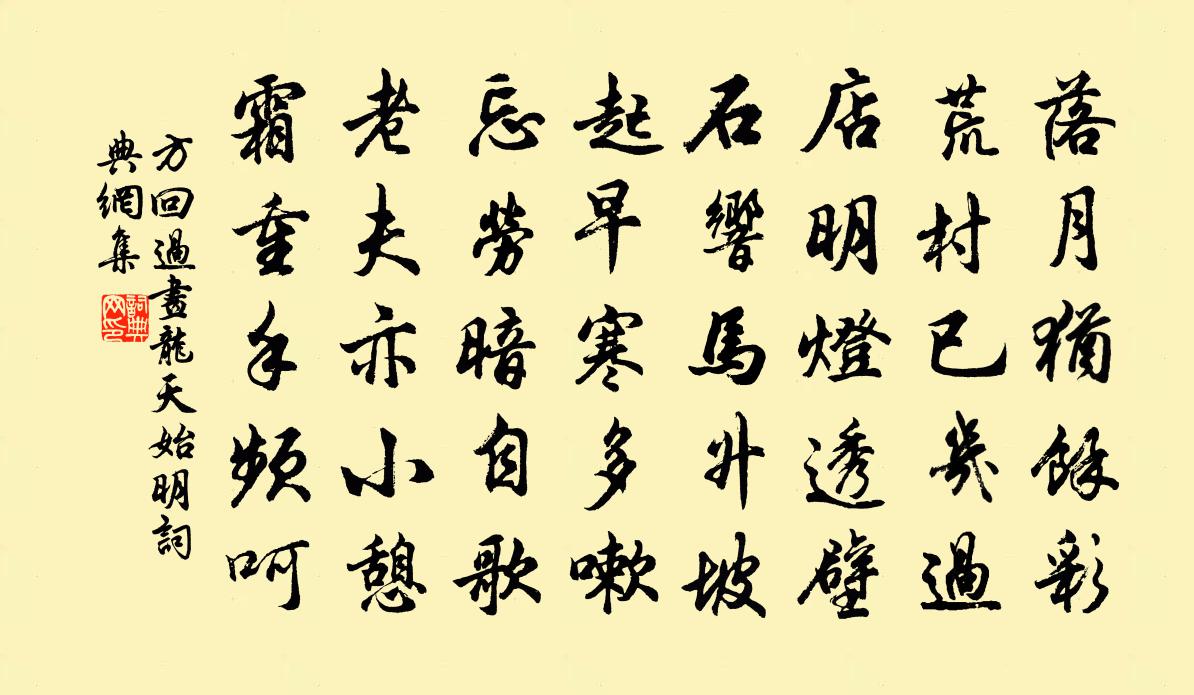 落月猶餘彩
荒村已幾過
店明燈透壁
石響馬升坡
起早寒多嗽
忘勞暗自歌
老夫亦小憩
霜重手頻呵
方回過晝龍天始明詞
典網集
詞典
网印